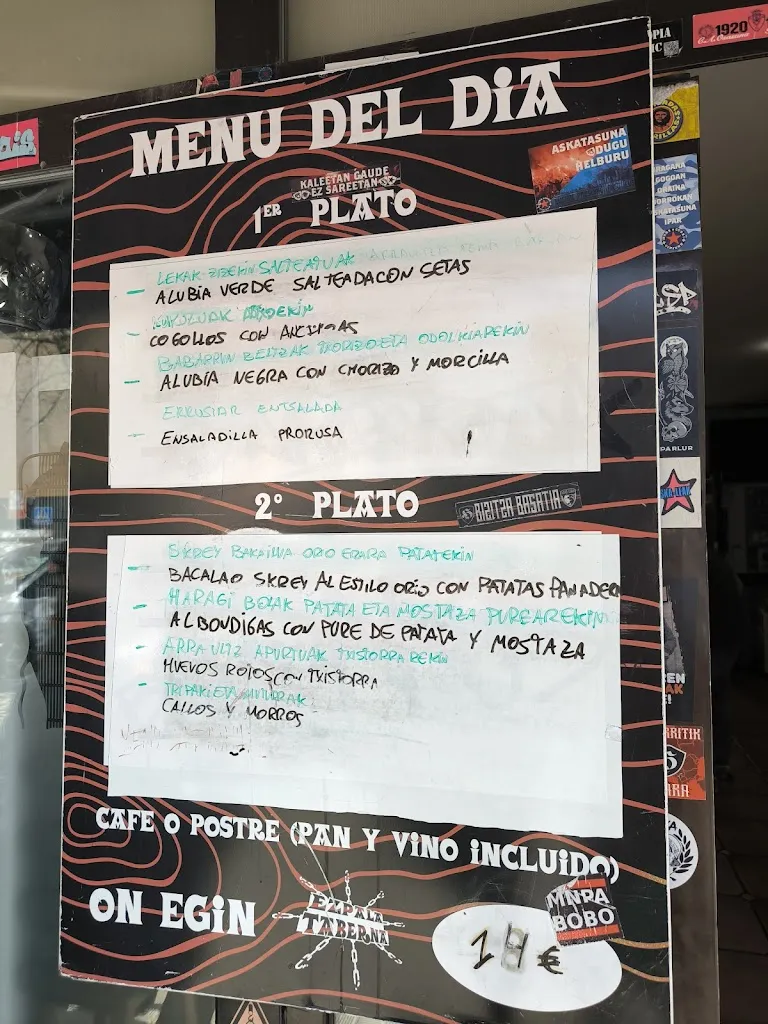 1920
MENU DEL DiA
ASKATASUNA
DUGU
HELBURU
KALEETAN GAUDE
EZ SAREETAN
1ER PLATO
LEKAK ZIZEKIN SALTEATUAK
ALUBIA VERDE SALTEADA CON SETAS
COGOLLOS CON ANCHOAS
BABARRUN BELTZAK TXORIZO ETA ODOLKIAREKIN
ALUBIA NEGRA CON CHORIZO Y MORCILLA
ERRUSIAR ENTSALADA
ENSALADILLA PRORUSA
2º PLATO
BIZITZA BASATIA
SKREY BAKAILUA ORIO ERARA PATATEKIN
BACALAO SKREY AL ESTILO ORIO CON PATATAS PANADER
HARAGI BOLAK PATATA ETA MOSTAZA PUREAREKIN
ALBONDIGAS CON PURE DE PATATA Y MOSTAZA
ARRAULTZ APURTUAK TXISTORRAREKIN
HUEVOS ROTOS CON TXISTORRA
TRIPAKI ETA MUTURRAK
CALLOS Y MORROS
CAFE O POSTRE (PAN Y ViNO iNCLUiDO)
ON EGiN
EZPALA
TABERNA
BOBO
€
PARLUR